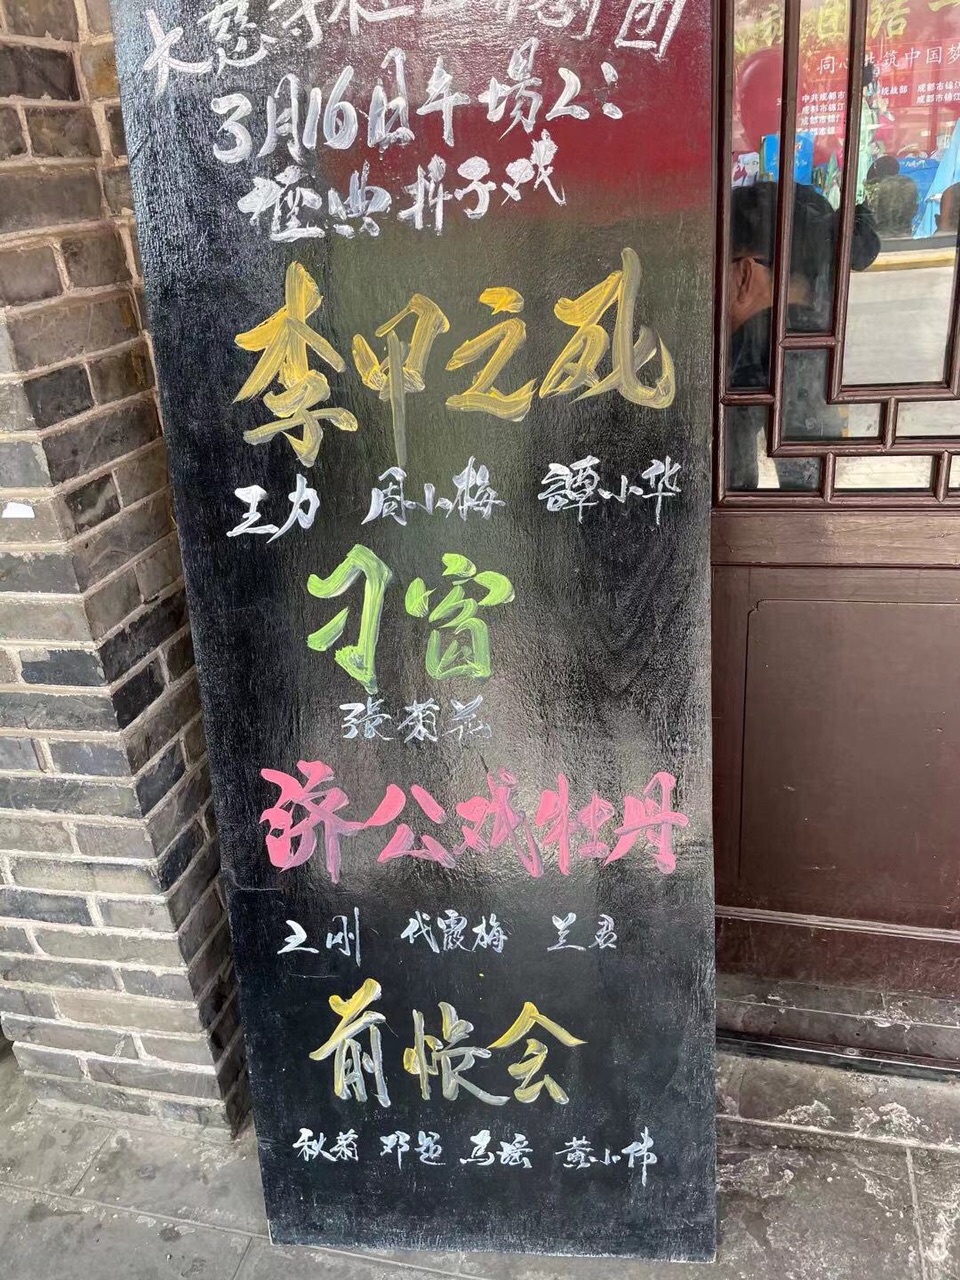 大慈寺社区川剧团
3月16日午场2:
经典折子戏
李甲之死
王力 周小梅 譚小华
刁窗
張菊花
济公戏牡丹
王刚 代霞梅 兰君
前帐会
秋菊 邓超 马瑶 黄小伟
同心共筑中国梦